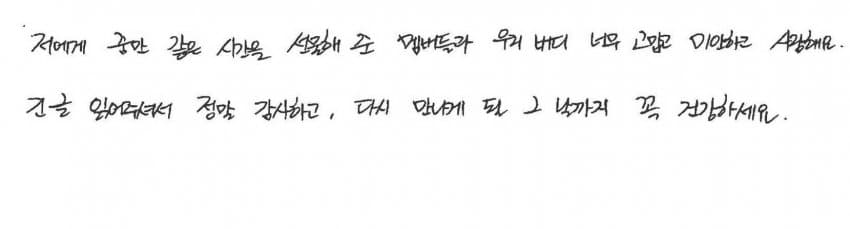 저에게 꿈만 같은 시간을 선물해 준 멤버들과 우리 버디 너무 고맙고 미안하고 사랑해요.
긴글 읽어주셔서 정말 감사하고, 다시 만나게 될 그 날까지 꼭 건강하세요.